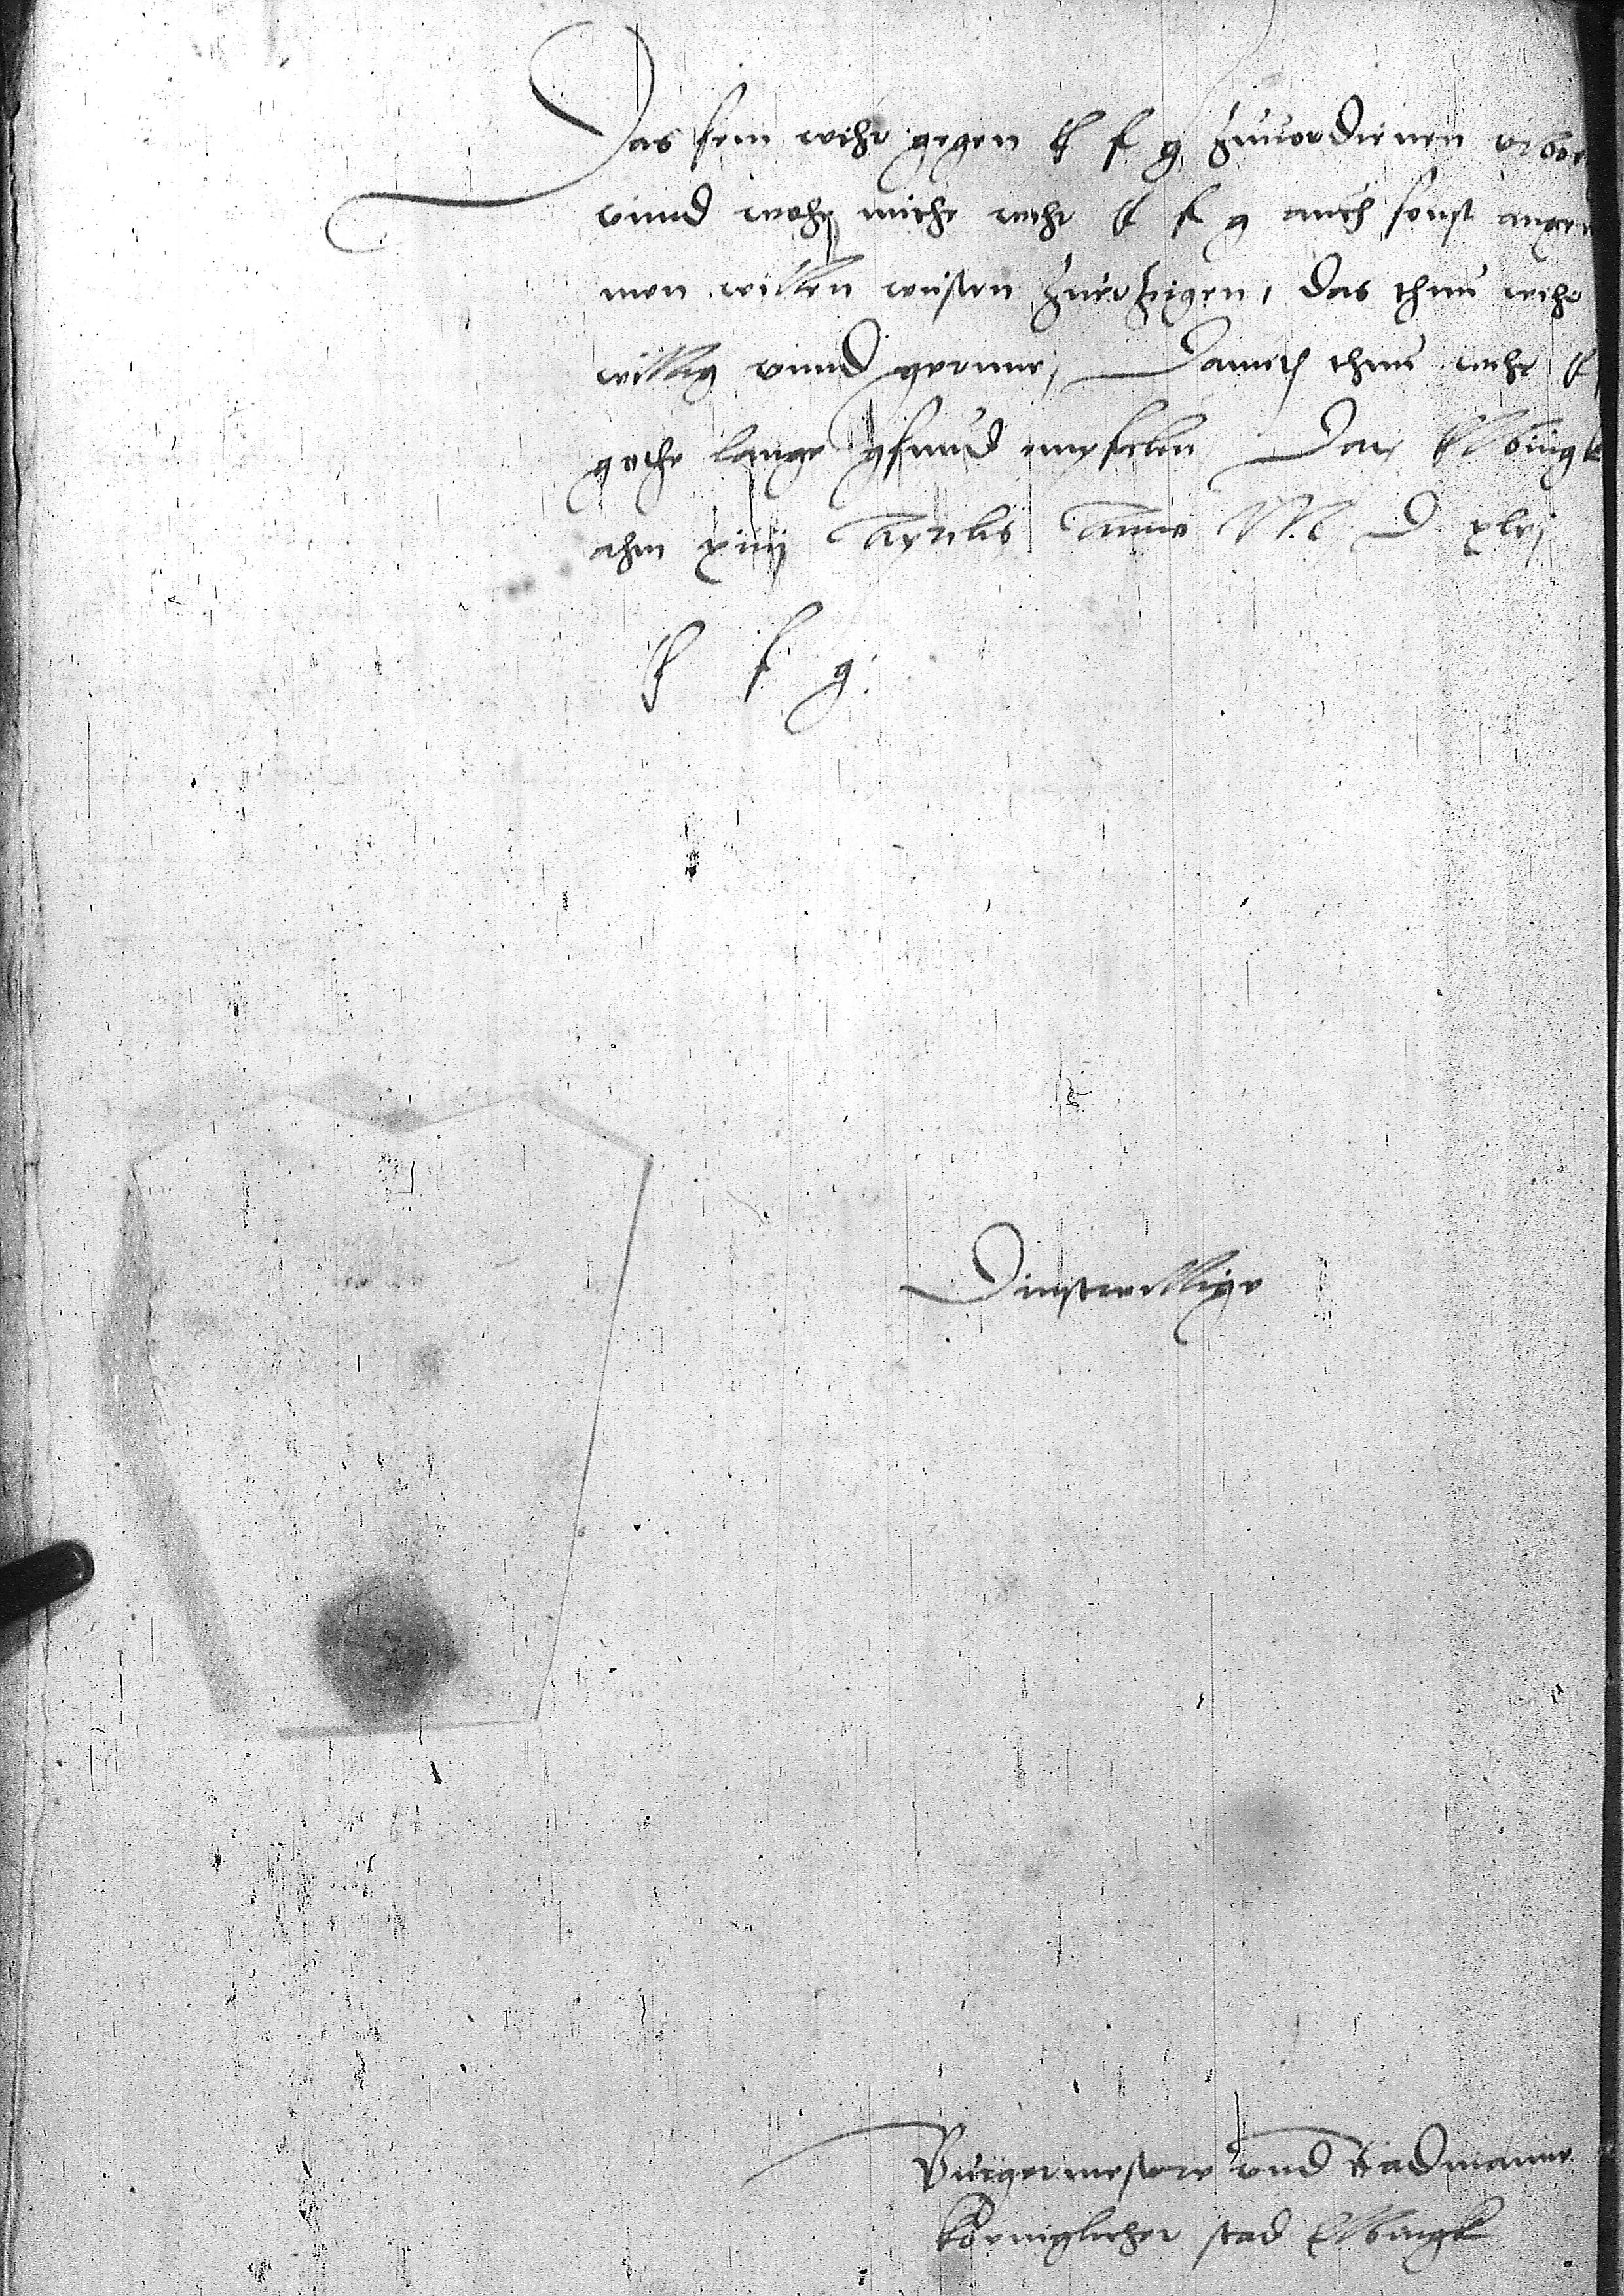 Das sein wihr gegen E f g zuuordienen erbo
vnnd wohr mithe wihr E f g auch sonst angene
men willen wusten zuertzigen, das thun wihr
willig vnnd gerne, Damith thun wihr E
gothe lange gsund empfelen Dat Elbingk
ahm xiiij Aprilis Anno M D xlvj
E f g.
Dinstwillige
Burgermestere vnd Radmanne
koeniglicher stad Elbingk